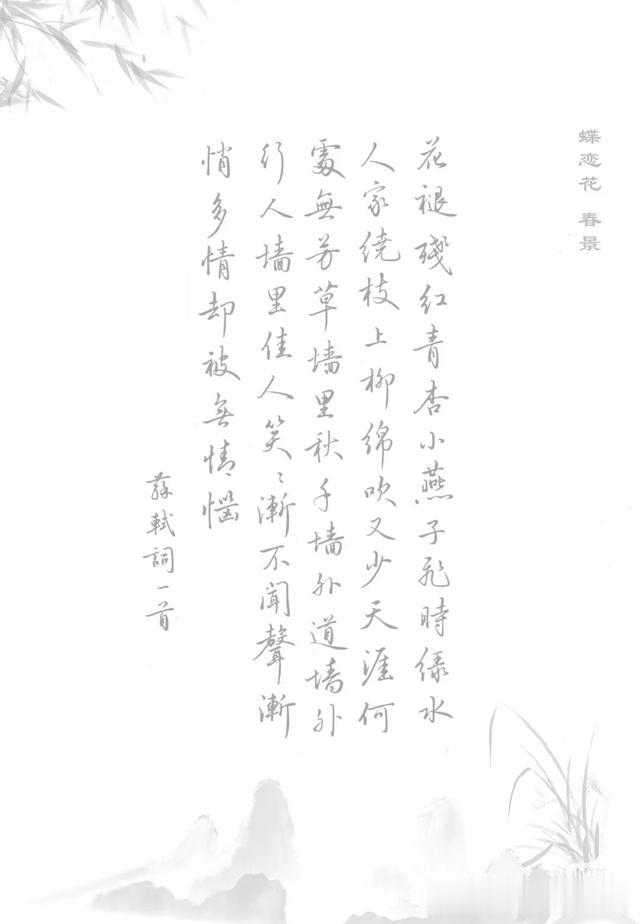 蝶恋花 春景
花褪殘红青杏小燕子飛時緑水
人家绕枝上柳绵吹又少天涯何
處無芳草墙里秋千墙外道墙外
行人墙里佳人笑笑漸不闻聲漸
悄多情却被無情惱
蘇軾詞一首